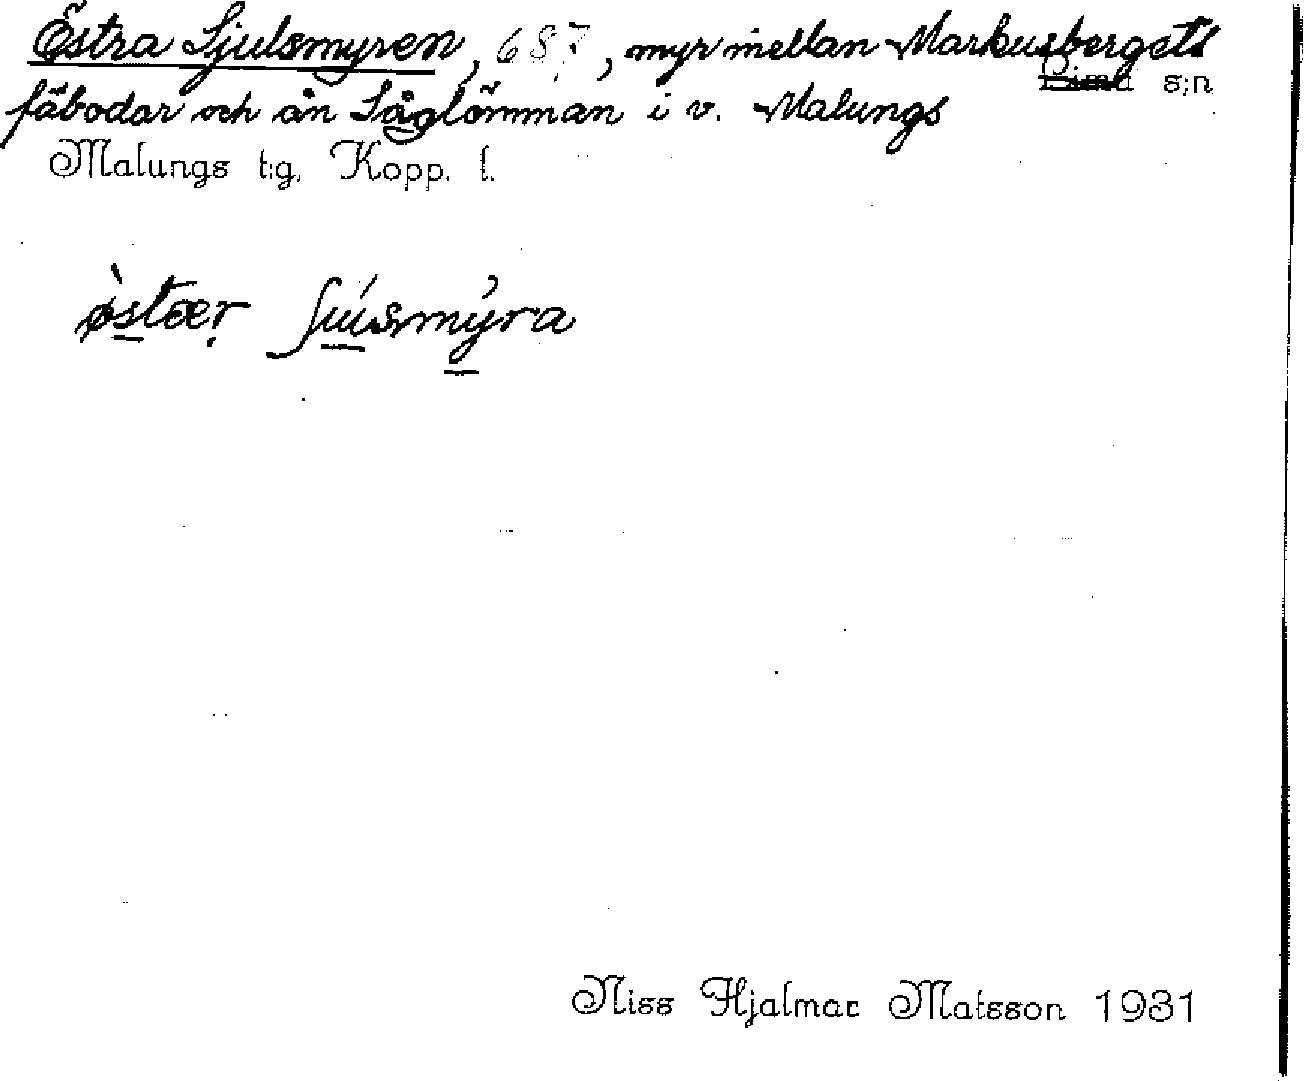 Östra Sjulsmyren, 687, myr mellan Markusbergets
fäbodar och ån Låglömman i v. Malungs
Lima s;n
Malungs t:g, Kopp. l.
Niss Hjalmar Matsson 1931